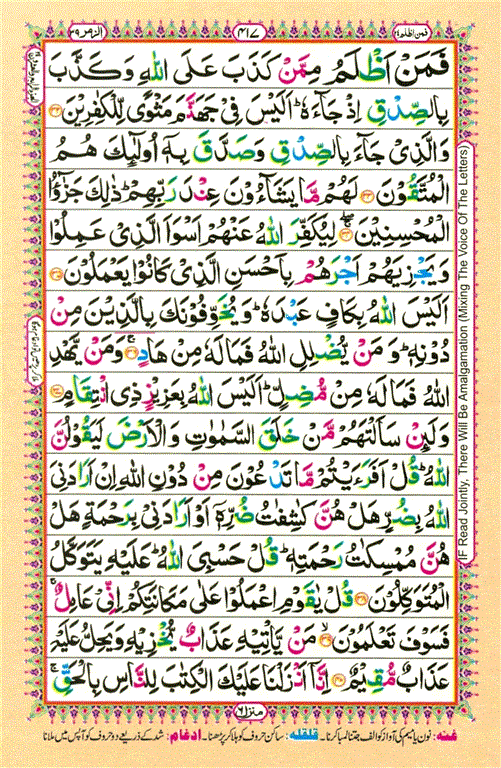 فمن اظلم ٢٤
٤١٧
الزمر ٣٩
فَمَنْ اَظْلَمُ مِمَّنْ كَذَبَ عَلَى اللهِ وَكَذَّبَ
بِالصِّدْقِ اِذْ جَآءَهٗ ؕ اَلَيْسَ فِىْ جَهَنَّمَ مَثْوًى لِّلْكٰفِرِيْنَ ﴿۳۲﴾
وَالَّذِىْ جَآءَ بِالصِّدْقِ وَصَدَّقَ بِهٖۤ اُولٰٓئِكَ هُمُ
الْمُتَّقُوْنَ ﴿۳۳﴾ لَهُمْ مَّا يَشَآءُوْنَ عِنْدَ رَبِّهِمْ ؕ ذٰلِكَ جَزٰٓؤُا
الْمُحْسِنِيْنَ ﴿۳۴﴾ لِيُكَفِّرَ اللهُ عَنْهُمْ اَسْوَاَ الَّذِىْ عَمِلُوْا
وَيَجْزِيَهُمْ اَجْرَهُمْ بِاَحْسَنِ الَّذِىْ كَانُوْا يَعْمَلُوْنَ ﴿۳۵﴾
اَلَيْسَ اللهُ بِكَافٍ عَبْدَهٗ ؕ وَيُخَوِّفُوْنَكَ بِالَّذِيْنَ مِنْ
دُوْنِهٖ ؕ وَمَنْ يُّضْلِلِ اللهُ فَمَا لَهٗ مِنْ هَادٍ ﴿۳۶﴾ وَمَنْ يَّهْدِ
اللهُ فَمَا لَهٗ مِنْ مُّضِلٍّ ؕ اَلَيْسَ اللهُ بِعَزِيْزٍ ذِى انْتِقَامٍ ﴿۳۷﴾
وَلَئِنْ سَاَلْتَهُمْ مَّنْ خَلَقَ السَّمٰوٰتِ وَالْاَرْضَ لَيَقُوْلُنَّ
اللهُ ؕ قُلْ اَفَرَءَيْتُمْ مَّا تَدْعُوْنَ مِنْ دُوْنِ اللهِ اِنْ اَرَادَنِىَ
اللهُ بِضُرٍّ هَلْ هُنَّ كٰشِفٰتُ ضُرِّهٖۤ اَوْ اَرَادَنِىْ بِرَحْمَةٍ هَلْ
هُنَّ مُمْسِكٰتُ رَحْمَتِهٖ ؕ قُلْ حَسْبِىَ اللهُ ؕ عَلَيْهِ يَتَوَكَّلُ
الْمُتَوَكِّلُوْنَ ﴿۳۸﴾ قُلْ يٰقَوْمِ اعْمَلُوْا عَلٰى مَكَانَتِكُمْ اِنِّىْ عَامِلٌ ۚ
فَسَوْفَ تَعْلَمُوْنَ ﴿۳۹﴾ مَنْ يَّاْتِيْهِ عَذَابٌ يُّخْزِيْهِ وَيَحِلُّ عَلَيْهِ
عَذَابٌ مُّقِيْمٌ ﴿۴۰﴾ اِنَّاۤ اَنْزَلْنَا عَلَيْكَ الْكِتٰبَ لِلنَّاسِ بِالْحَقِّ ۚ
(IF Read Jointly, There Will Be Amalgamation (Mixing The Voice Of The Letters)
منزل ٦
غنه: نون یا میم کی آواز کو الف جتنا لمبا کرنا۔ قلقلہ: ساکن حروف کو ہلا کر پڑھنا۔ ادغام: شد کے ذریعے دو حروف کو آپس میں ملانا